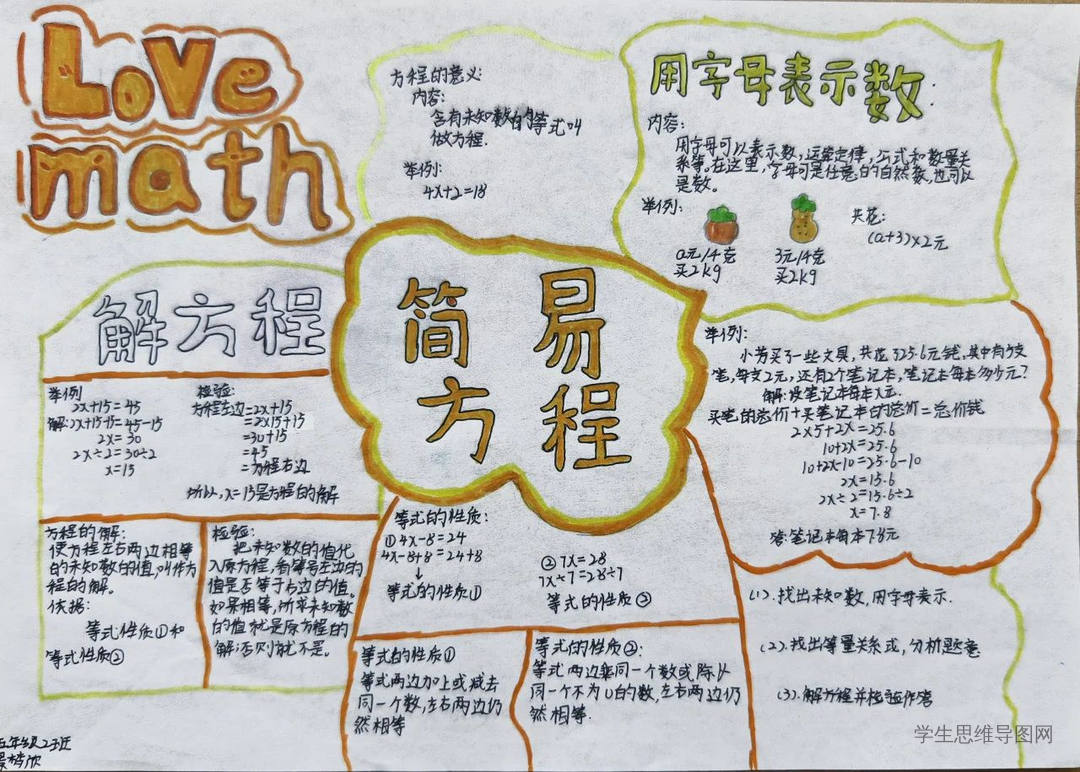 Love
math
方程的意义:
内容:
含有未知数的等式叫
做方程.
举例:
4x+2=18
用字母表示数.
内容:
用字母可以表示数,运算定律,公式和数量关
系等.在这里,字母可是任意的自然数,也可以
是数。
举例:
a元/千克
买2kg
3元/千克
买2kg
共花:
(a+3)×2元
简易
方程
解方程
举例
2x+15=45
解:2x+15-15=45-15
2x=30
2x÷2=30÷2
x=15
检验:
方程左边=2x+15
=2×15+15
=30+15
=45
=方程右边
所以,x=15是方程的解
方程的解:
使方程左右两边相等
的未知数的值,叫作方
程的解。
依据:
等式性质①和
等式性质②
检验:
把未知数的值代
入原方程,看等号左边的
值是否等于右边的值。
如果相等,所求未知数
的值就是原方程的
解,否则就不是。
等式的性质:
①4x-8=24
4x-8+8=24+8
↓
等式的性质①
②7x=28
7x÷7=28÷7
等式的性质②
等式的性质①
等式两边加上或减去
同一个数,左右两边仍
然相等
等式的性质②:
等式两边乘同一个数或除以
同一个不为0的数,左右两边仍
然相等.
举例:
小芳买了一些文具,共花了25.6元钱,其中有5支
笔,每支2元,还有2个笔记本,笔记本每本多少元?
解:设笔记本每本x元.
买笔的总价+买笔记本的总价=总价钱
2×5+2x=25.6
10+2x=25.6
10+2x-10=25.6-10
2x=15.6
2x÷2=15.6÷2
x=7.8
答:笔记本每本7.8元
(1).找出未知数,用字母表示.
(2).找出等量关系式,分析题意
(3).解方程并检验作答
五年级23班
学生思维导图网